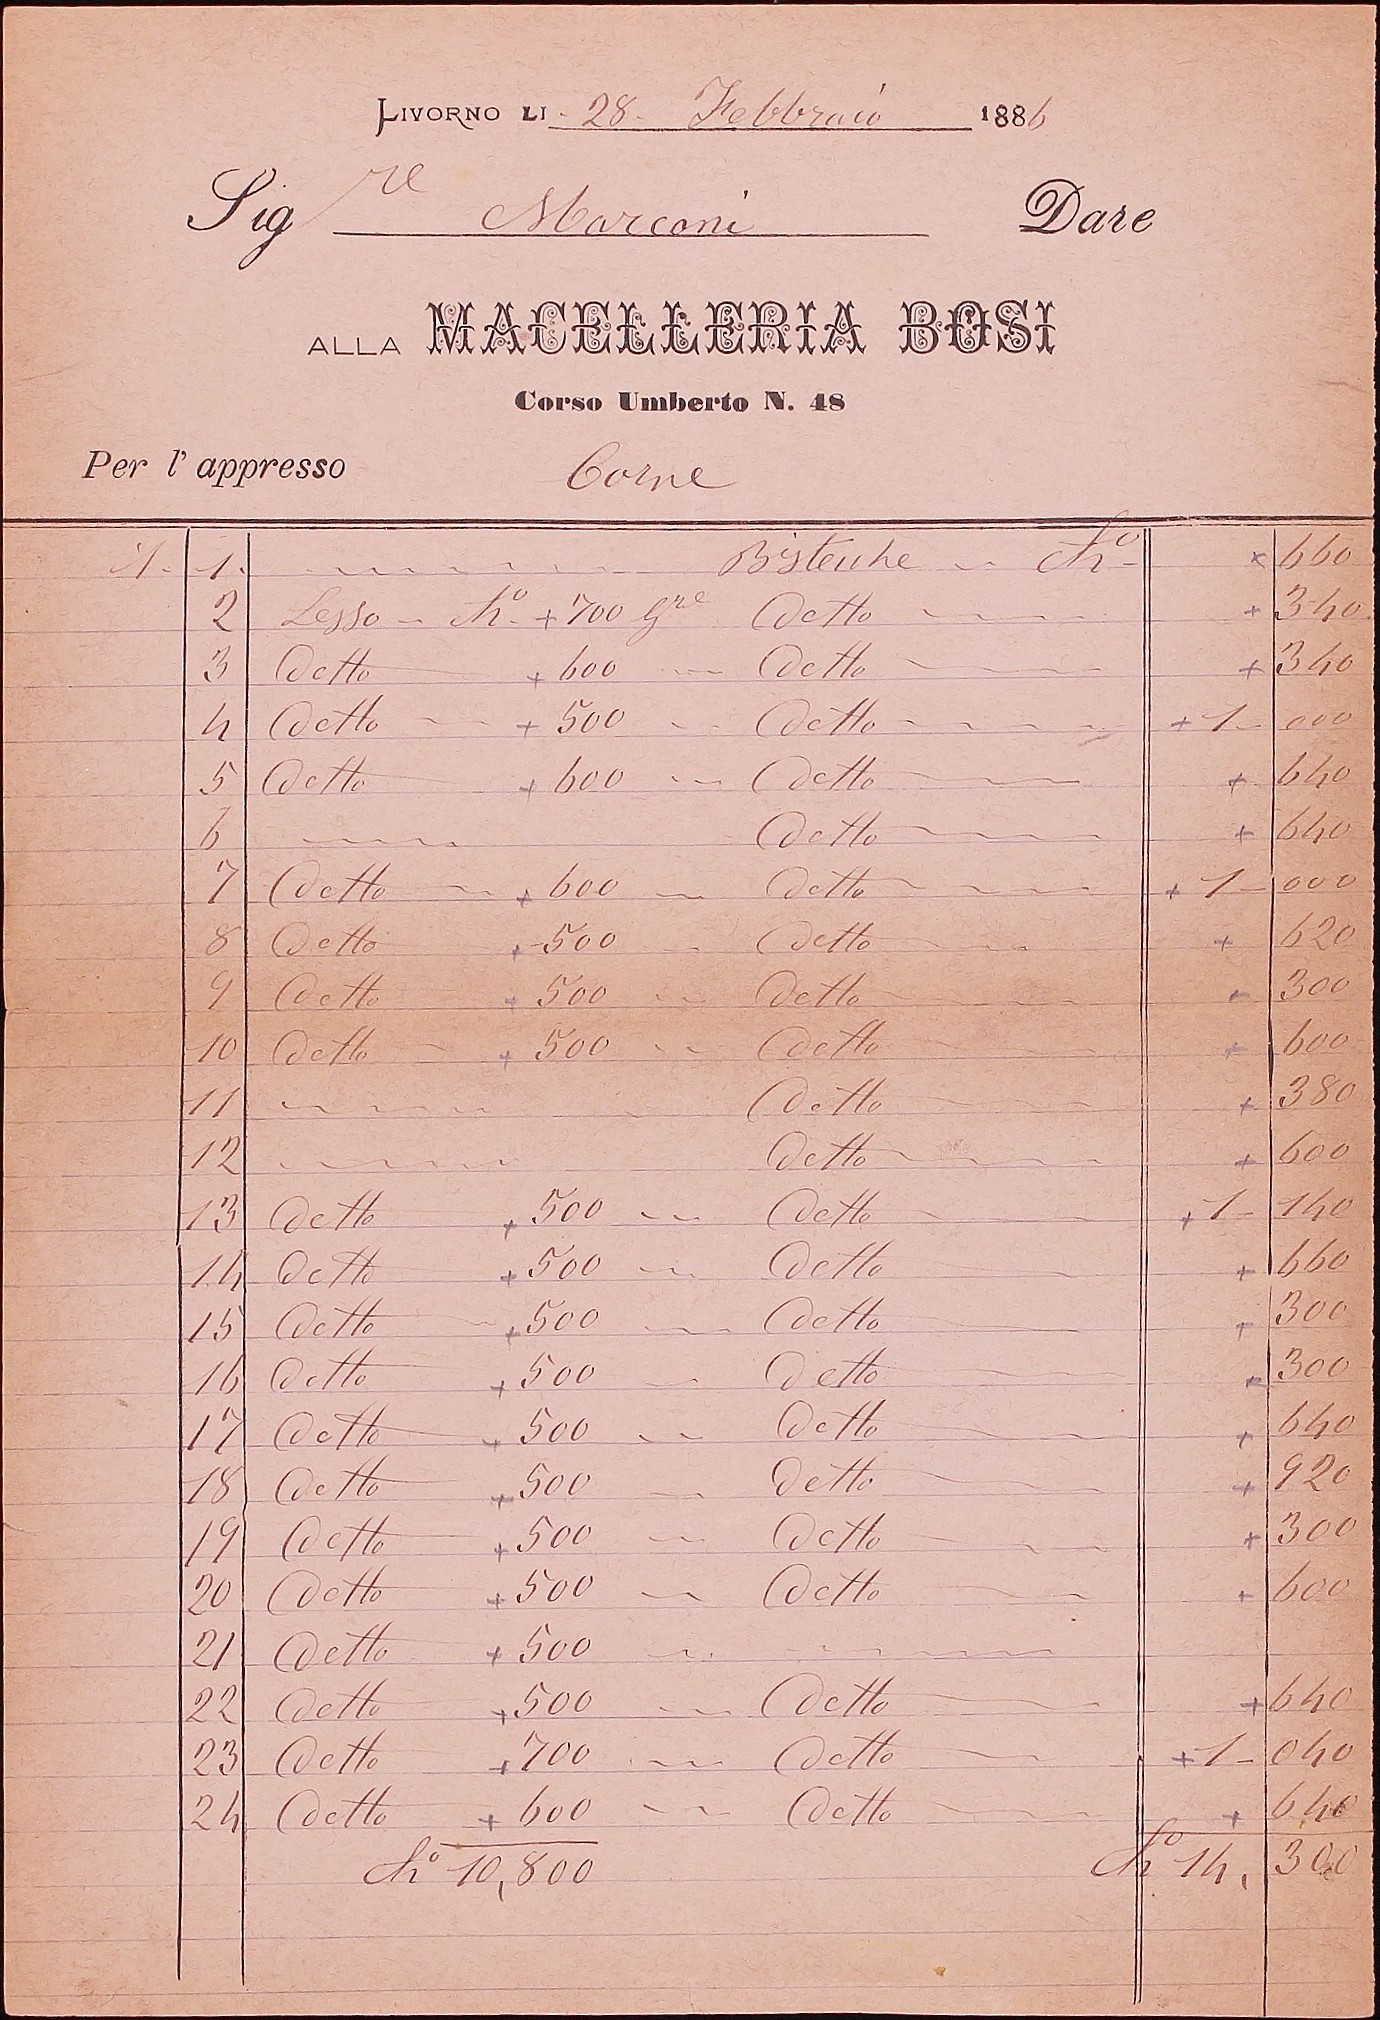 LIVORNO LI 28 Febbraio 1886
Sig re Marconi Dare
ALLA MACELLERIA BOSI
Corso Umberto N. 48
Per l' appresso Carne
1. Bistecche Ch° × 660
2 Lesso Ch° + 700 Gre Detto + 340
3 Detto + 600 Detto + 340
4 Detto + 500 Detto + 1 000
5 Detto + 600 Detto + 640
6 Detto + 640
7 Detto + 600 Detto + 1 000
8 Detto + 500 Detto + 620
9 Detto + 500 Detto + 300
10 Detto + 500 Detto + 600
11 Detto + 380
12 Detto + 600
13 Detto + 500 Detto + 1 140
14 Detto + 500 Detto + 660
15 Detto + 500 Detto + 300
16 Detto + 500 Detto + 300
17 Detto + 500 Detto + 640
18 Detto + 500 Detto + 920
19 Detto + 500 Detto + 300
20 Detto + 500 Detto + 600
21 Detto + 500
22 Detto + 500 Detto + 640
23 Detto + 700 Detto + 1 040
24 Detto + 600 Detto + 640
Ch° 10,800 Ch° 14, 300